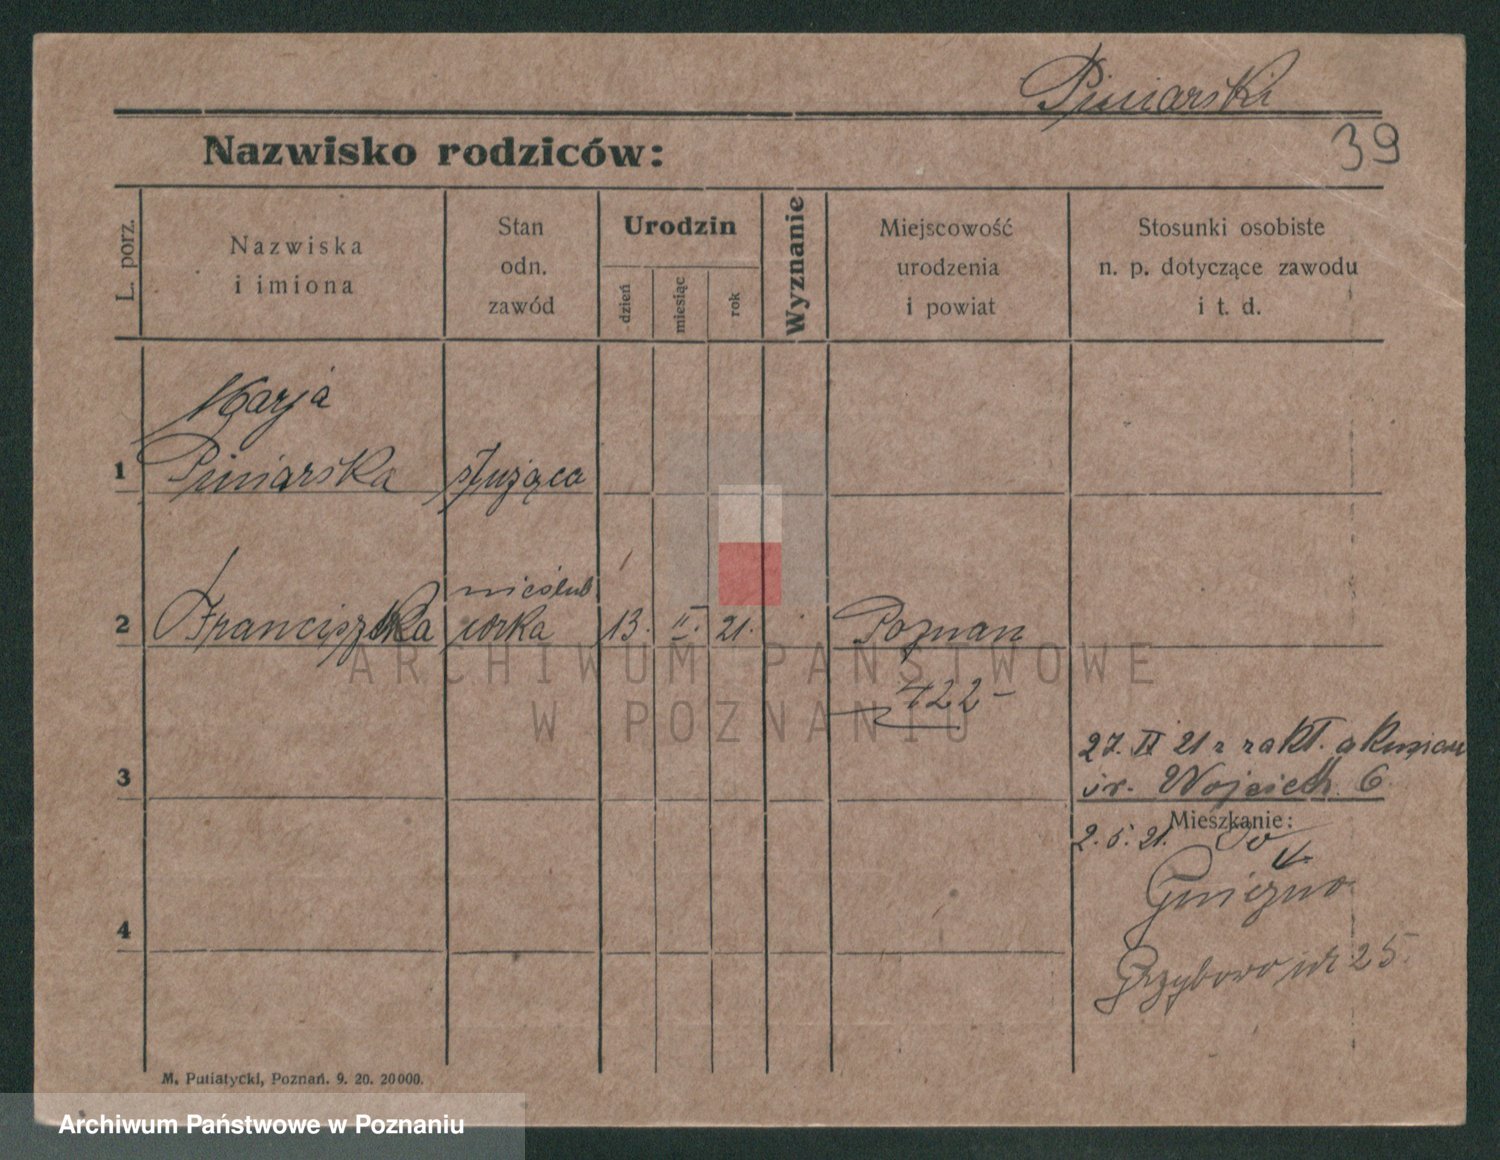 Piniarski
39
Nazwisko rodziców:
L. porz.
Nazwiska
i imiona
Stan
odn.
zawód
Urodzin
dzień
miesiąc
rok
Wyznanie
Miejscowość
urodzenia
i powiat
Stosunki osobiste
n. p. dotyczące zawodu
i t. d.
Marja
1 Piniarska służąca
nieślub
2 Franciszka córka 13. II. 21. Poznan
422-
ARCHIWUM PAŃSTWOWE
W POZNANIU
27. II 21 z zakł.
3 św. Wojciech 6
Mieszkanie:
2. 5. 21. do
Gniezno
4
Grzybowo 25.
M. Putiatycki, Poznań. 9. 20. 20000.
Archiwum Państwowe w Poznaniu